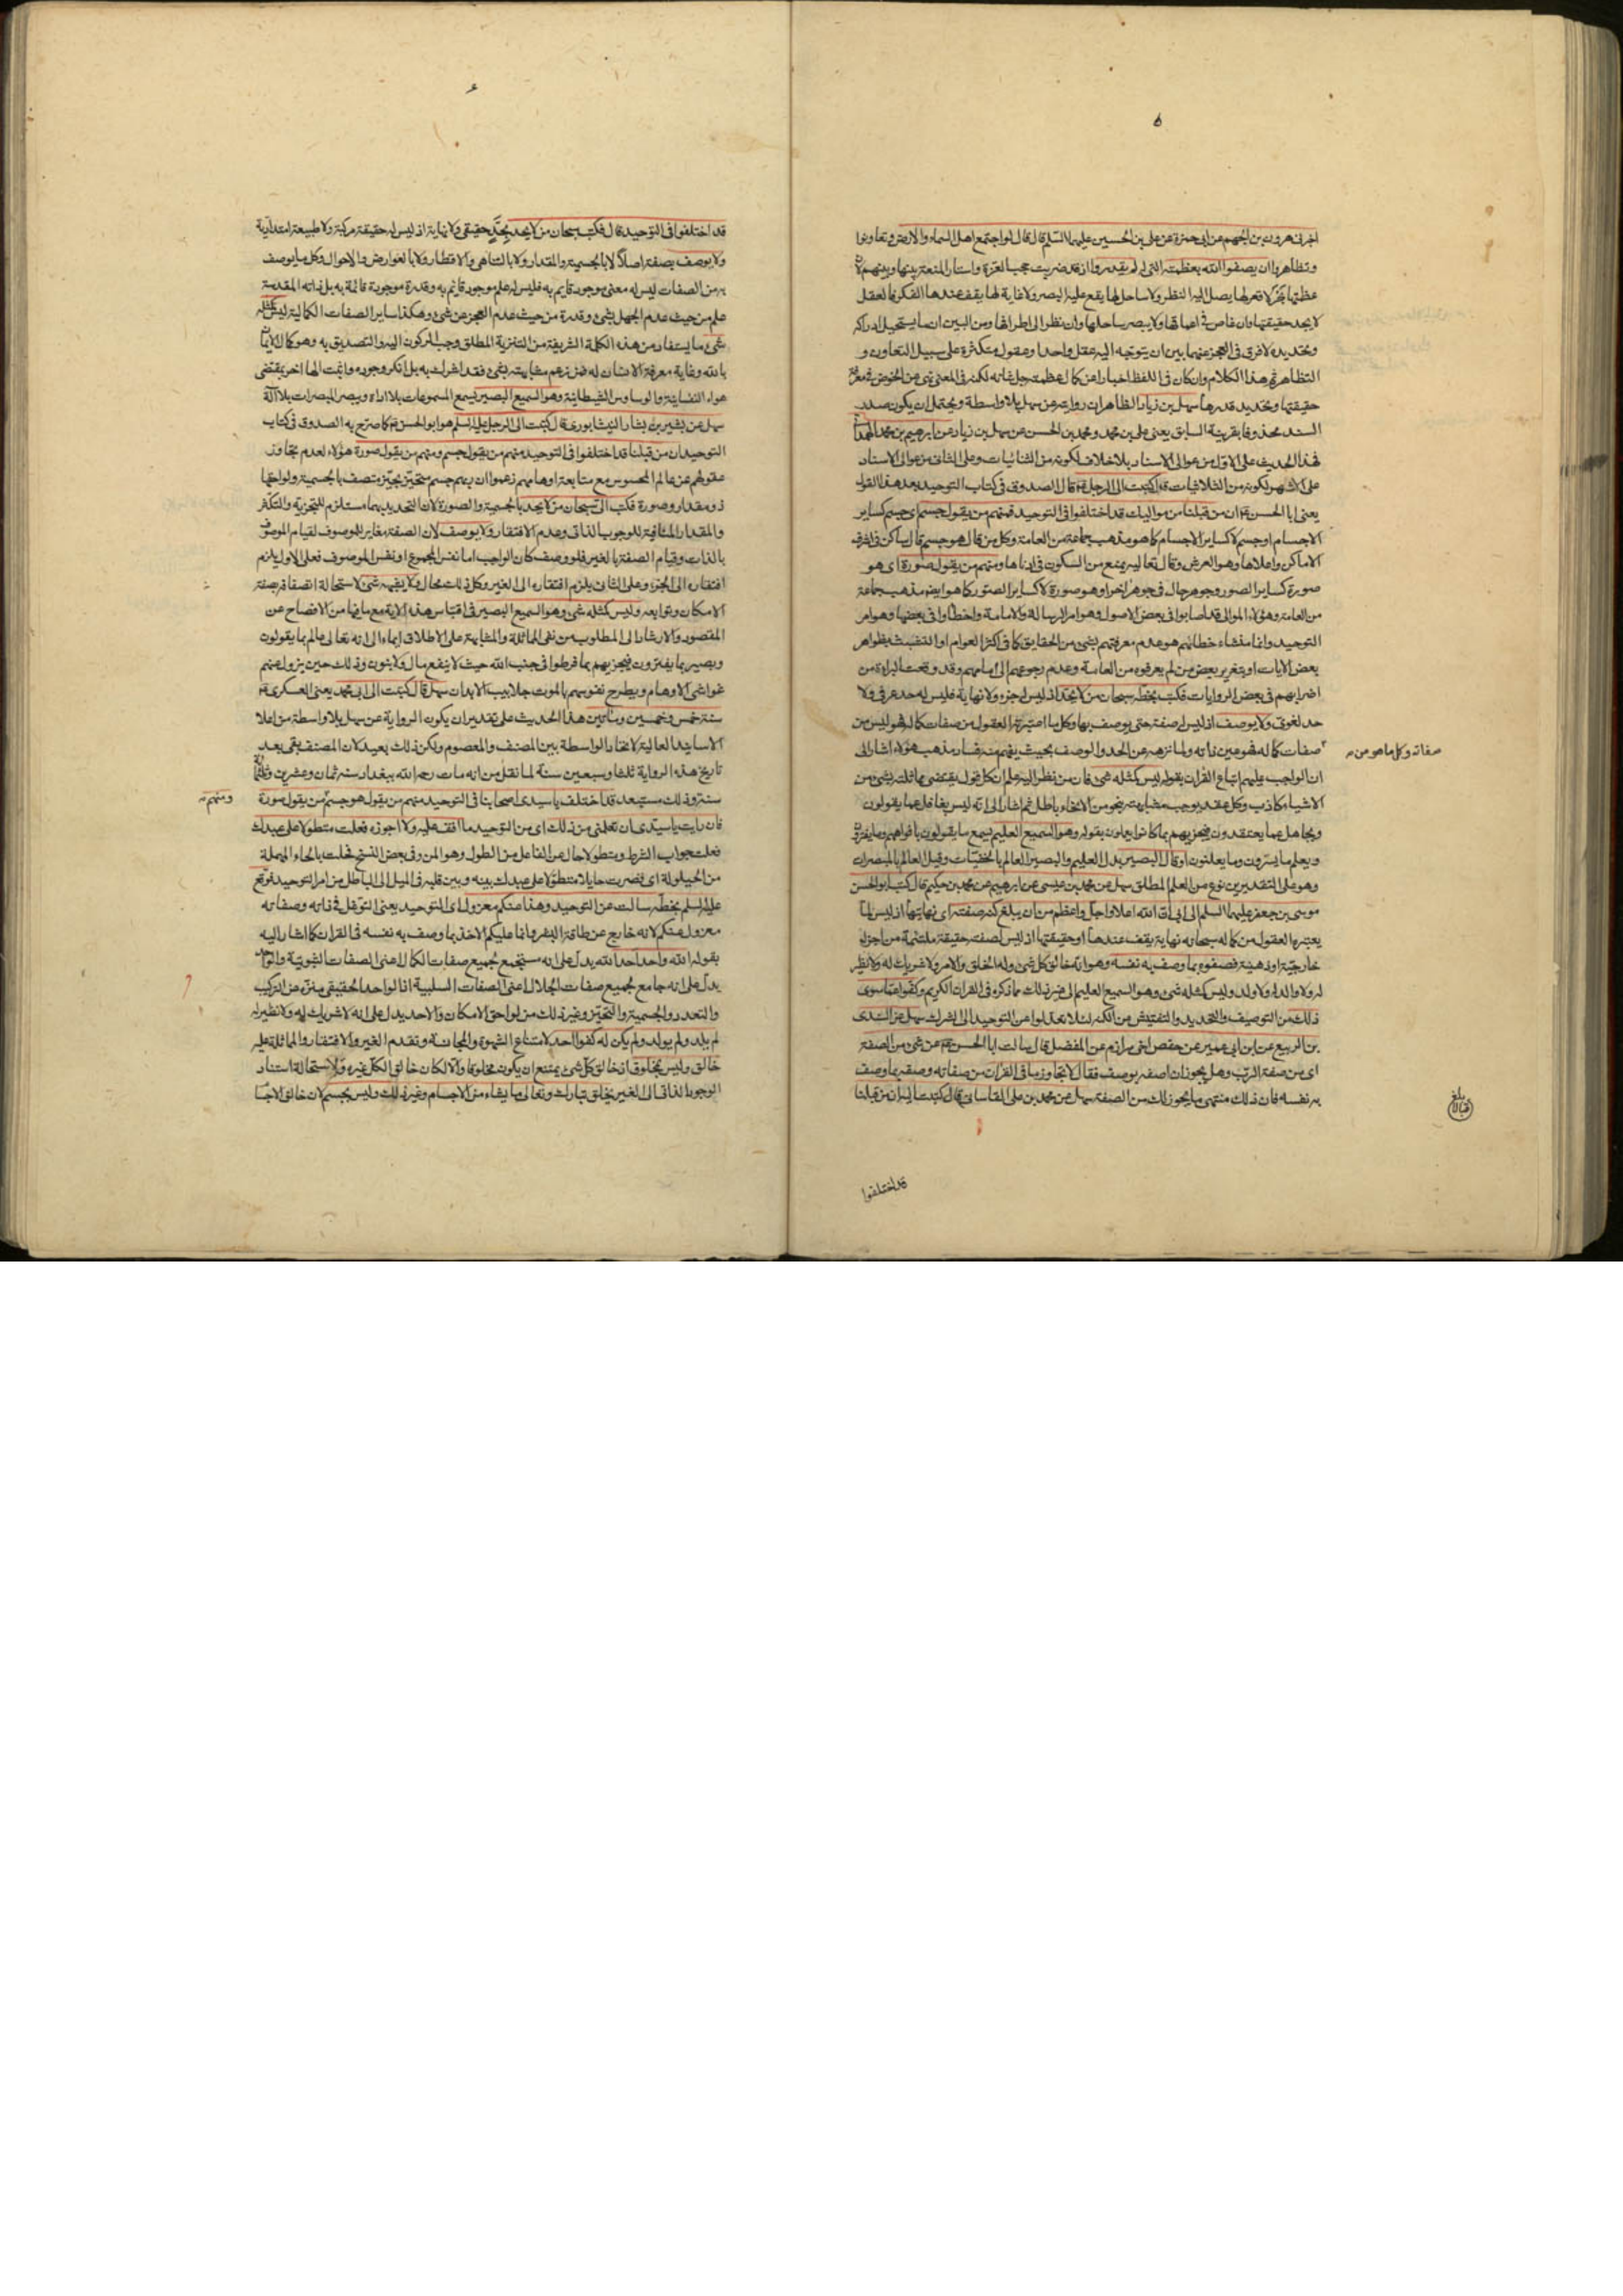 ٥
اخبرنى هرون بن الجهم عن ابى حمزة عن على بن الحسين عليهما السلم قال قال لو اجتمع اهل السماء والارض وتعاونوا
وتظاهروا ان يصفوا الله بعظمته لم يقدروا اذ قد ضربت حجب العزة واستار المنعة بينها وبينهم لان
عظمتها بحر لا قعر لها يصل اليه النظر ولا ساحل لها يقع عليه البصر ولا غاية لها يقف عندها الفكر فالعقل
لا يجد حقيقتها وان غاص فى اعماقها ولا يبصر ساحلها وان نظر الى اطرافها ومن البين ان ما يستحيل ادراكه
وتحديده لا فرق فى العجز عنهما بين ان يتوجه اليه عقل واحد او عقول متكثرة على سبيل التعاون و
التظاهر ثم هذا الكلام وان كان فى اللفظ اخبارا عن كمال عظمته جل شانه لكنه فى المعنى نهى عن الخوض فى معرفة
حقيقتها وتحديد قدرها سهل بن زياد الظاهر ان روايته عن سهل بلا واسطة ويحتمل ان يكون صدر
السند محذوفا بقرينة السابق يعنى على بن محمد ومحمد بن الحسن عن سهل بن زياد عن ابرهيم بن محمد الهمدانى
فهذا الحديث على الاول من عوالى الاسناد بلا خلاف لكونه من الثنائيات وعلى الثانى من عوالى الاسناد
على الاشهر لكونه من الثلاثيات قال كتبت الى الرجل ع قال الصدوق فى كتاب التوحيد بعد هذا القول
يعنى ابا الحسن ع ان من قبلنا من مواليك قد اختلفوا فى التوحيد فمنهم من يقول جسم اى جسم كساير
الاجسام او جسم لا كساير الاجسام كما هو مذهب جماعة من العامة وكل من قال هو جسم قال ساكن فى اشرف
الاماكن واعلاها وهو العرش وقال تعاليه يمنع من السكون فى ادناها ومنهم من يقول صورة اى هو
صورة كساير الصور وجوهر حال فى جوهر اخر او هو صورة لا كساير الصور كما هو ايضا مذهب جماعة
من العامة وهؤلاء الموالى قد اصابوا فى بعض الاصول وهو امر الرسالة والامامة واخطأوا فى بعضها وهو امر
التوحيد وانما منشاء خطائهم هو عدم معرفتهم بشىء من الحقايق كما فى اكثر العوام او التشبث بظواهر
بعض الايات او بتغرير بعض من لم يعرفوه من العامة وعدم رجوعهم الى امامهم وقد وقعت البراءة من
اضرابهم فى بعض الروايات فكتب بخطه سبحان من لا يحد اذ ليس له جزء ولا نهاية فليس له حد عرفى ولا
حد لغوى ولا يوصف اذ ليس له صفة حتى يوصف بها وكل ما اعتبرته العقول من صفات كماله فهو ليس من
صفات كماله فهو عين ذاته ولما نزهه عن الحد والوصف بحيث يفهم منه فساد مذهب هؤلاء اشار الى
صفاته وكل ما هو من
ان الواجب عليهم اتباع القران بقوله ليس كمثله شئ فان من نظر اليه علم ان كل قول يقتضى مماثلته بشئ من
الاشياء كاذب وكل عقد يوجب مشابهته بنحو من الانحاء باطل ثم اشار الى انه ليس بغافل عما يقولون
وبجاهل عما يعتقدون فيجزيهم بما كانوا يعملون بقوله وهو السميع العليم يسمع ما يقولون بافواههم وما يفترون
ويعلم ما يسرون وما يعلنون او قال البصير بدل العليم والبصير العالم بالخفيات وقيل العالم بالمبصرات
وهو على التقديرين نوع من العلم المطلق سهل عن محمد بن عيسى عن ابرهيم عن محمد بن حكيم قال كتب ابو الحسن
موسى بن جعفر عليهما السلم الى ابى ان الله اعلا واجل واعظم من ان يبلغ كنه صفته اى نهايتها اذ ليس لما
يعتبره العقول من كماله سبحانه نهاية يقف عندها او حقيقتها اذ ليس لصفته حقيقة ملتئمة من اجزاء
خارجية او ذهنية فصفوه بما وصف به نفسه وهو انه خالق كل شئ وله الخلق والامر ولا شريك له ولا نظير
له ولا والد له ولا ولد وليس كمثله شئ وهو السميع العليم الى غير ذلك مما ذكره فى القران الكريم وكفوا عما سوى
ذلك من التوصيف والتحديد والتفتيش من الكنه لئلا تعدلوا عن التوحيد الى الشرك سهل عن السندى
بن الربيع عن ابن ابى عمير عن حفص اخى مرازم عن المفضل قال سالت ابا الحسن ع عن شئ من الصفة
اى من صفة الرب وهل يجوز ان اصفه بوصف فقال لا تجاوز ما فى القران من صفاته وصفه بما وصف
به نفسه فان ذلك منتهى ما يجوز لك من الصفة سهل عن محمد بن على القاسانى قال كتبت اليه ان من قبلنا
بلغ قبالا
قد اختلفوا
قد اختلفوا فى التوحيد قال فكتب سبحان من لا يحد بحد حقيقى ولا نهاية اذ ليس له حقيقة مركبة ولا طبيعة امتدادية
ولا يوصف بصفة اصلا لا بالجسمية والمقدار ولا بالتناهى والاقطار ولا بالعوارض والاحوال وكل ما يوصف
به من الصفات ليس له معنى موجود قايم به فليس له علم موجود قايم به وقدرة موجودة قائمة به بل ذاته المقدسة
علم من حيث عدم الجهل بشئ وقدرة من حيث عدم العجز عن شئ وهكذا ساير الصفات الكمالية ليس كمثله
شئ ما يستفاد من هذه الكلمة الشريفة من التنزيه المطلق وجب الركون اليه والتصديق به وهو كمال الايمان
بالله وغاية معرفة الانسان له فمن زعم مشابهته بشئ فقد اشرك به بل انكر وجوده واثبت الها اخر بمقتضى
هواه النفسانية والوساوس الشيطانية وهو السميع البصير يسمع المسموعات بلا اداة ويبصر المبصرات بلا الة
سهل عن بشير بن بشار النيشابورى قال كتبت الى الرجل عليه السلم هو ابو الحسن ع كما صرح به الصدوق فى كتاب
التوحيد ان من قبلنا قد اختلفوا فى التوحيد منهم من يقول جسم ومنهم من يقول صورة هؤلاء لعدم تجاوز
عقولهم عن عالم المحسوس مع متابعة اوهامهم زعموا ان ربهم جسم متحيز بحيز متصف بالجسمية ولواحقها
ذو مقدار وصورة فكتب الى سبحان من لا يحد بالجسمية والصورة لان التحديد بهما مستلزم للتجزية والتكثر
والمقدار المنافية للوجوب الذاتى وعدم الافتقار ولا يوصف لان الصفة مغاير للموصوف لقيام الموصوف
بالذات وقيام الصفة بالغير فلو وصف كان الواجب اما نفس المجموع او نفس الموصوف فعلى الاول يلزم
افتقاره الى الجزء وعلى الثانى يلزم افتقاره الى الغير وكل ذلك محال ولا يشبهه شئ لاستحالة اتصافه بصفة
الامكان وتوابعه وليس كمثله شئ وهو السميع البصير فى اقتباس هذه الاية مع ما فيها من الافصاح عن
المقصود والارشاد الى المطلوب من نفى المماثلة والمشابهة على الاطلاق ايماء الى انه تعالى عالم بما يقولون
وبصير بما يفترون فيجزيهم بما فرطوا فى جنب الله حيث لا ينفع مال ولا بنون وذلك حين يزول عنهم
غواشى الاوهام ويطرح نفوسهم بالموت جلابيب الابدان سهل قال كتبت الى ابى محمد يعنى العسكرى ع
سنة خمس وخمسين ومأتين هذا الحديث على تقدير ان يكون الرواية عن سهل بلا واسطة من اعلا
الاسانيد العالية لاتحاد الواسطة بين المصنف والمعصوم ولكن ذلك بعيد لان المصنف بقى بعد
تاريخ هذه الرواية ثلثا وسبعين سنة لما نقل من انه مات رحمه الله ببغداد سنة ثمان وعشرين وثلثمائة
سنة وذلك مستبعد قد اختلف يا سيدى اصحابنا فى التوحيد منهم من يقول هو جسم من يقول صورة
ومنهم
فان رايت يا سيدى ان تعلمنى من ذلك اى من التوحيد ما اقف عليه ولا اجوزه فعلت متطولا على عبدك
فعلت جواب الشرط ومتطولا حال عن الفاعل من الطول وهو المن وفى بعض النسخ فحلت بالحاء المهملة
من الحيلولة اى فصرت حايلا متطولا على عبدك بينه وبين قلبه فى الميل الى الباطل من امر التوحيد فوقع
عليه السلم بخطه سالت عن التوحيد وهذا عنكم معزول اى التوحيد يعنى التوغل فى ذاته وصفاته
معزول عنكم لانه خارج عن طاقة البشر وانما عليكم الاخذ بما وصف به نفسه فى القران كما اشار اليه
بقوله الله واحد احد الله يدل على انه مستجمع لجميع صفات الكمال اعنى الصفات الثبوتية والواحد
يدل على انه جامع لجميع صفات الجلال اعنى الصفات السلبية اذ الواحد الحقيقى منزه عن التركيب
والتعدد والجسمية والتحيز وغير ذلك من لواحق الامكان والاحد يدل على انه لا شريك له ولا نظير له
لم يلد ولم يولد ولم يكن له كفوا احد لامتناع الشهوة والمجانسة وتقدم الغير والافتقار والمماثلة عليه
خالق وليس بمخلوق اذ خالق كل شئ يمتنع ان يكون مخلوقا والا لكان خالق الكل غيره ولاستحالة استناد
الوجود الذاتى الى الغير يخلق تبارك وتعالى ما يشاء من الاجسام وغير ذلك وليس بجسم لان خالق الاجسا